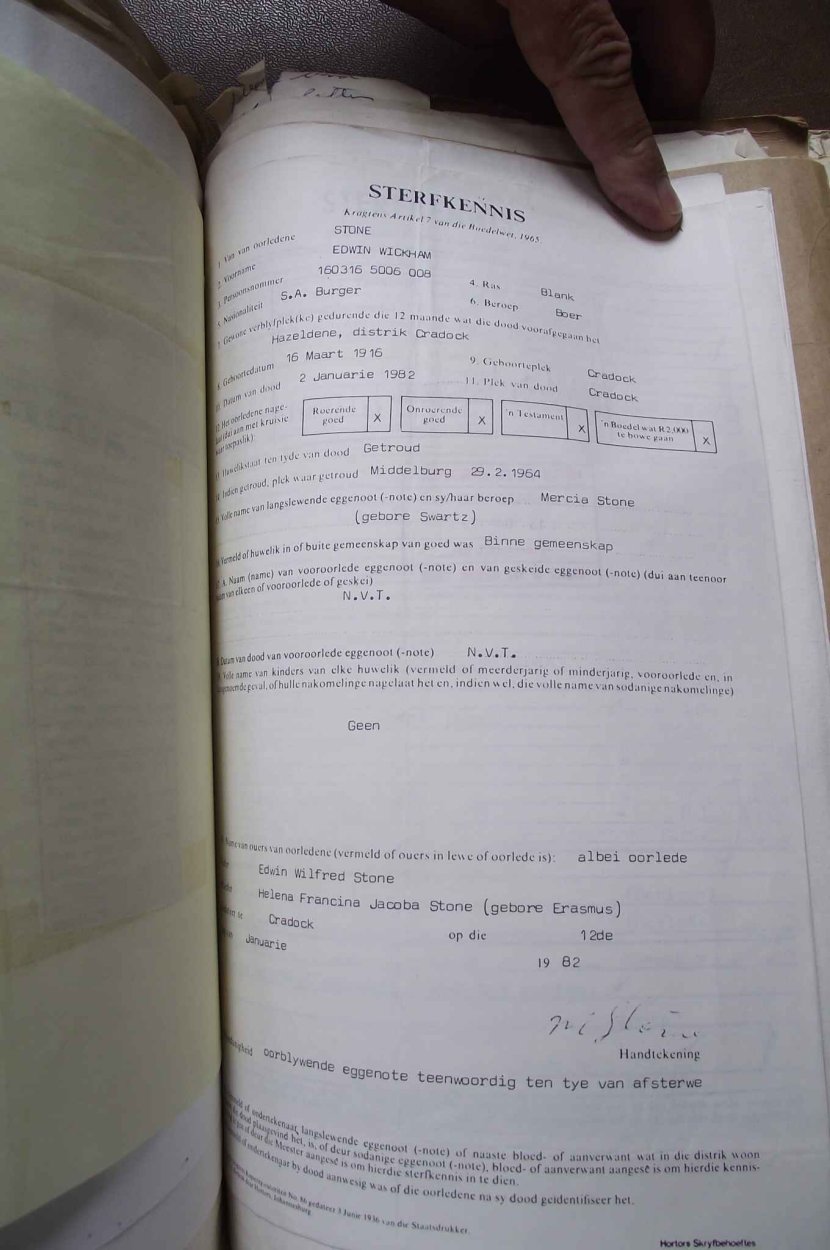 STERFKENNIS
Kragtens Artikel 7 van die Boedelwet, 1965.
1. Van van oorledene STONE
2. Voorname EDWIN WICKHAM
3. Persoonsnommer 160316 5006 008 4. Ras Blank
5. Nasionaliteit S.A. Burger 6. Beroep Boer
7. Gewone verblyfplek(ke) gedurende die 12 maande wat die dood voorafgegaan het
Hazeldene, distrik Cradock
8. Geboortedatum 16 Maart 1916 9. Geboorteplek Cradock
Datum van dood 2 Januarie 1982 11. Plek van dood Cradock
12. Het oorledene nage-
laat (dui aan met kruisie
waar toepaslik):
Roerende goed X
Onroerende goed X
'n Testament X
'n Boedel wat R2,000 te bowe gaan X
Huwelikstaat ten tyde van dood Getroud
14. Indien getroud, plek waar getroud Middelburg 29.2.1964
Volle name van langslewende eggenoot (-note) en sy/haar beroep Mercia Stone
(gebore Swartz)
Vermeld of huwelik in of buite gemeenskap van goed was Binne gemeenskap
A. Naam (name) van vooroorlede eggenoot (-note) en van geskeide eggenoot (-note) (dui aan teenoor
naam van elkeen of vooroorlede of geskei)
N.V.T.
Datum van dood van vooroorlede eggenoot (-note) N.V.T.
Volle name van kinders van elke huwelik (vermeld of meerderjarig of minderjarig, vooroorlede en, in
geval, of hulle nakomelinge nagelaat het en, indien wel, die volle name van sodanige nakomelinge)
Geen
Name van ouers van oorledene (vermeld of ouers in lewe of oorlede is): albei oorlede
Edwin Wilfred Stone
Helena Francina Jacoba Stone (gebore Erasmus)
Cradock op die 12de
Januarie 19 82
Handtekening
oorblywende eggenote teenwoordig ten tye van afsterwe
langslewende eggenoot (-note) of naaste bloed- of aanverwant wat in die distrik woon
het, is, of deur sodanige eggenoot (-note), bloed- of aanverwant aangesê is om hierdie kennis-
of deur die Meester aangesê is om hierdie sterfkennis in te dien.
of ondertekenaar by dood aanwesig was of die oorledene na sy dood geïdentifiseer het.
No. 86 gedateer 3 Junie 1936 van die Staatsdrukker.
Johannesburg
Hortors Skryfbehoeftes